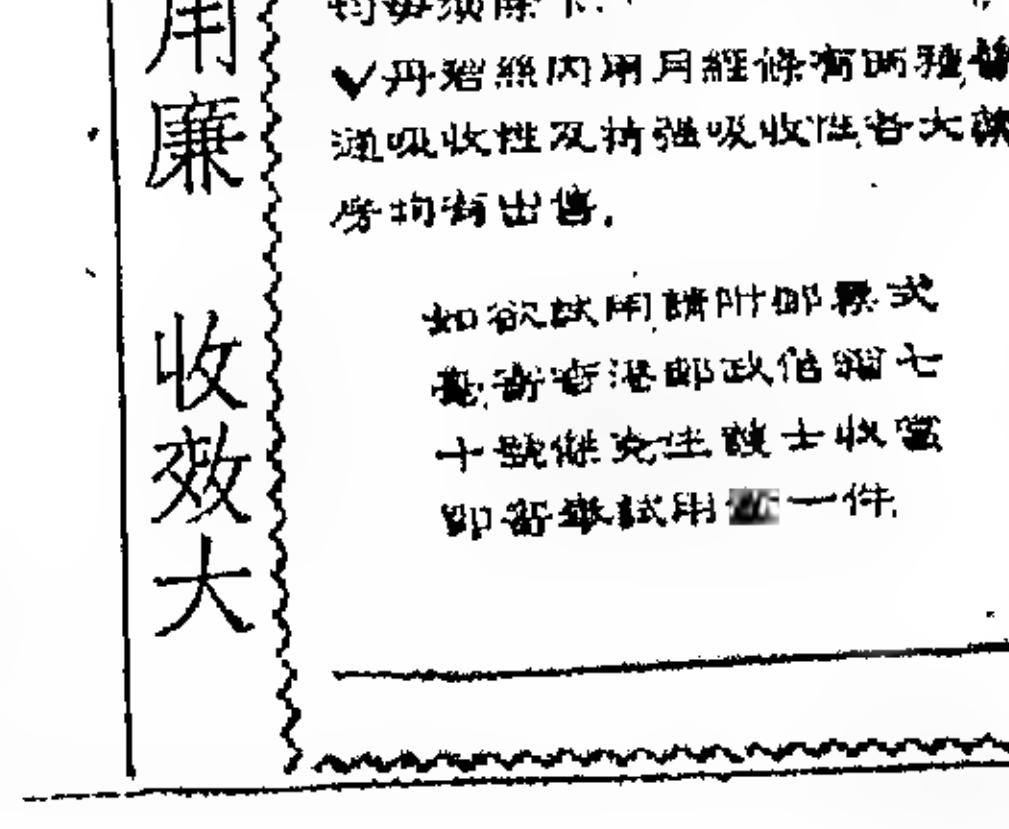 用廉 收效大
均毋須除下.
✓丹碧絲內用月經條有兩種,普
通吸收性及特強吸收性各大藥
房均有出售.
如欲試用,請附郵票式
毫,寄香港郵政信箱七
十號傑克生護士收當
即寄奉試用 一件.